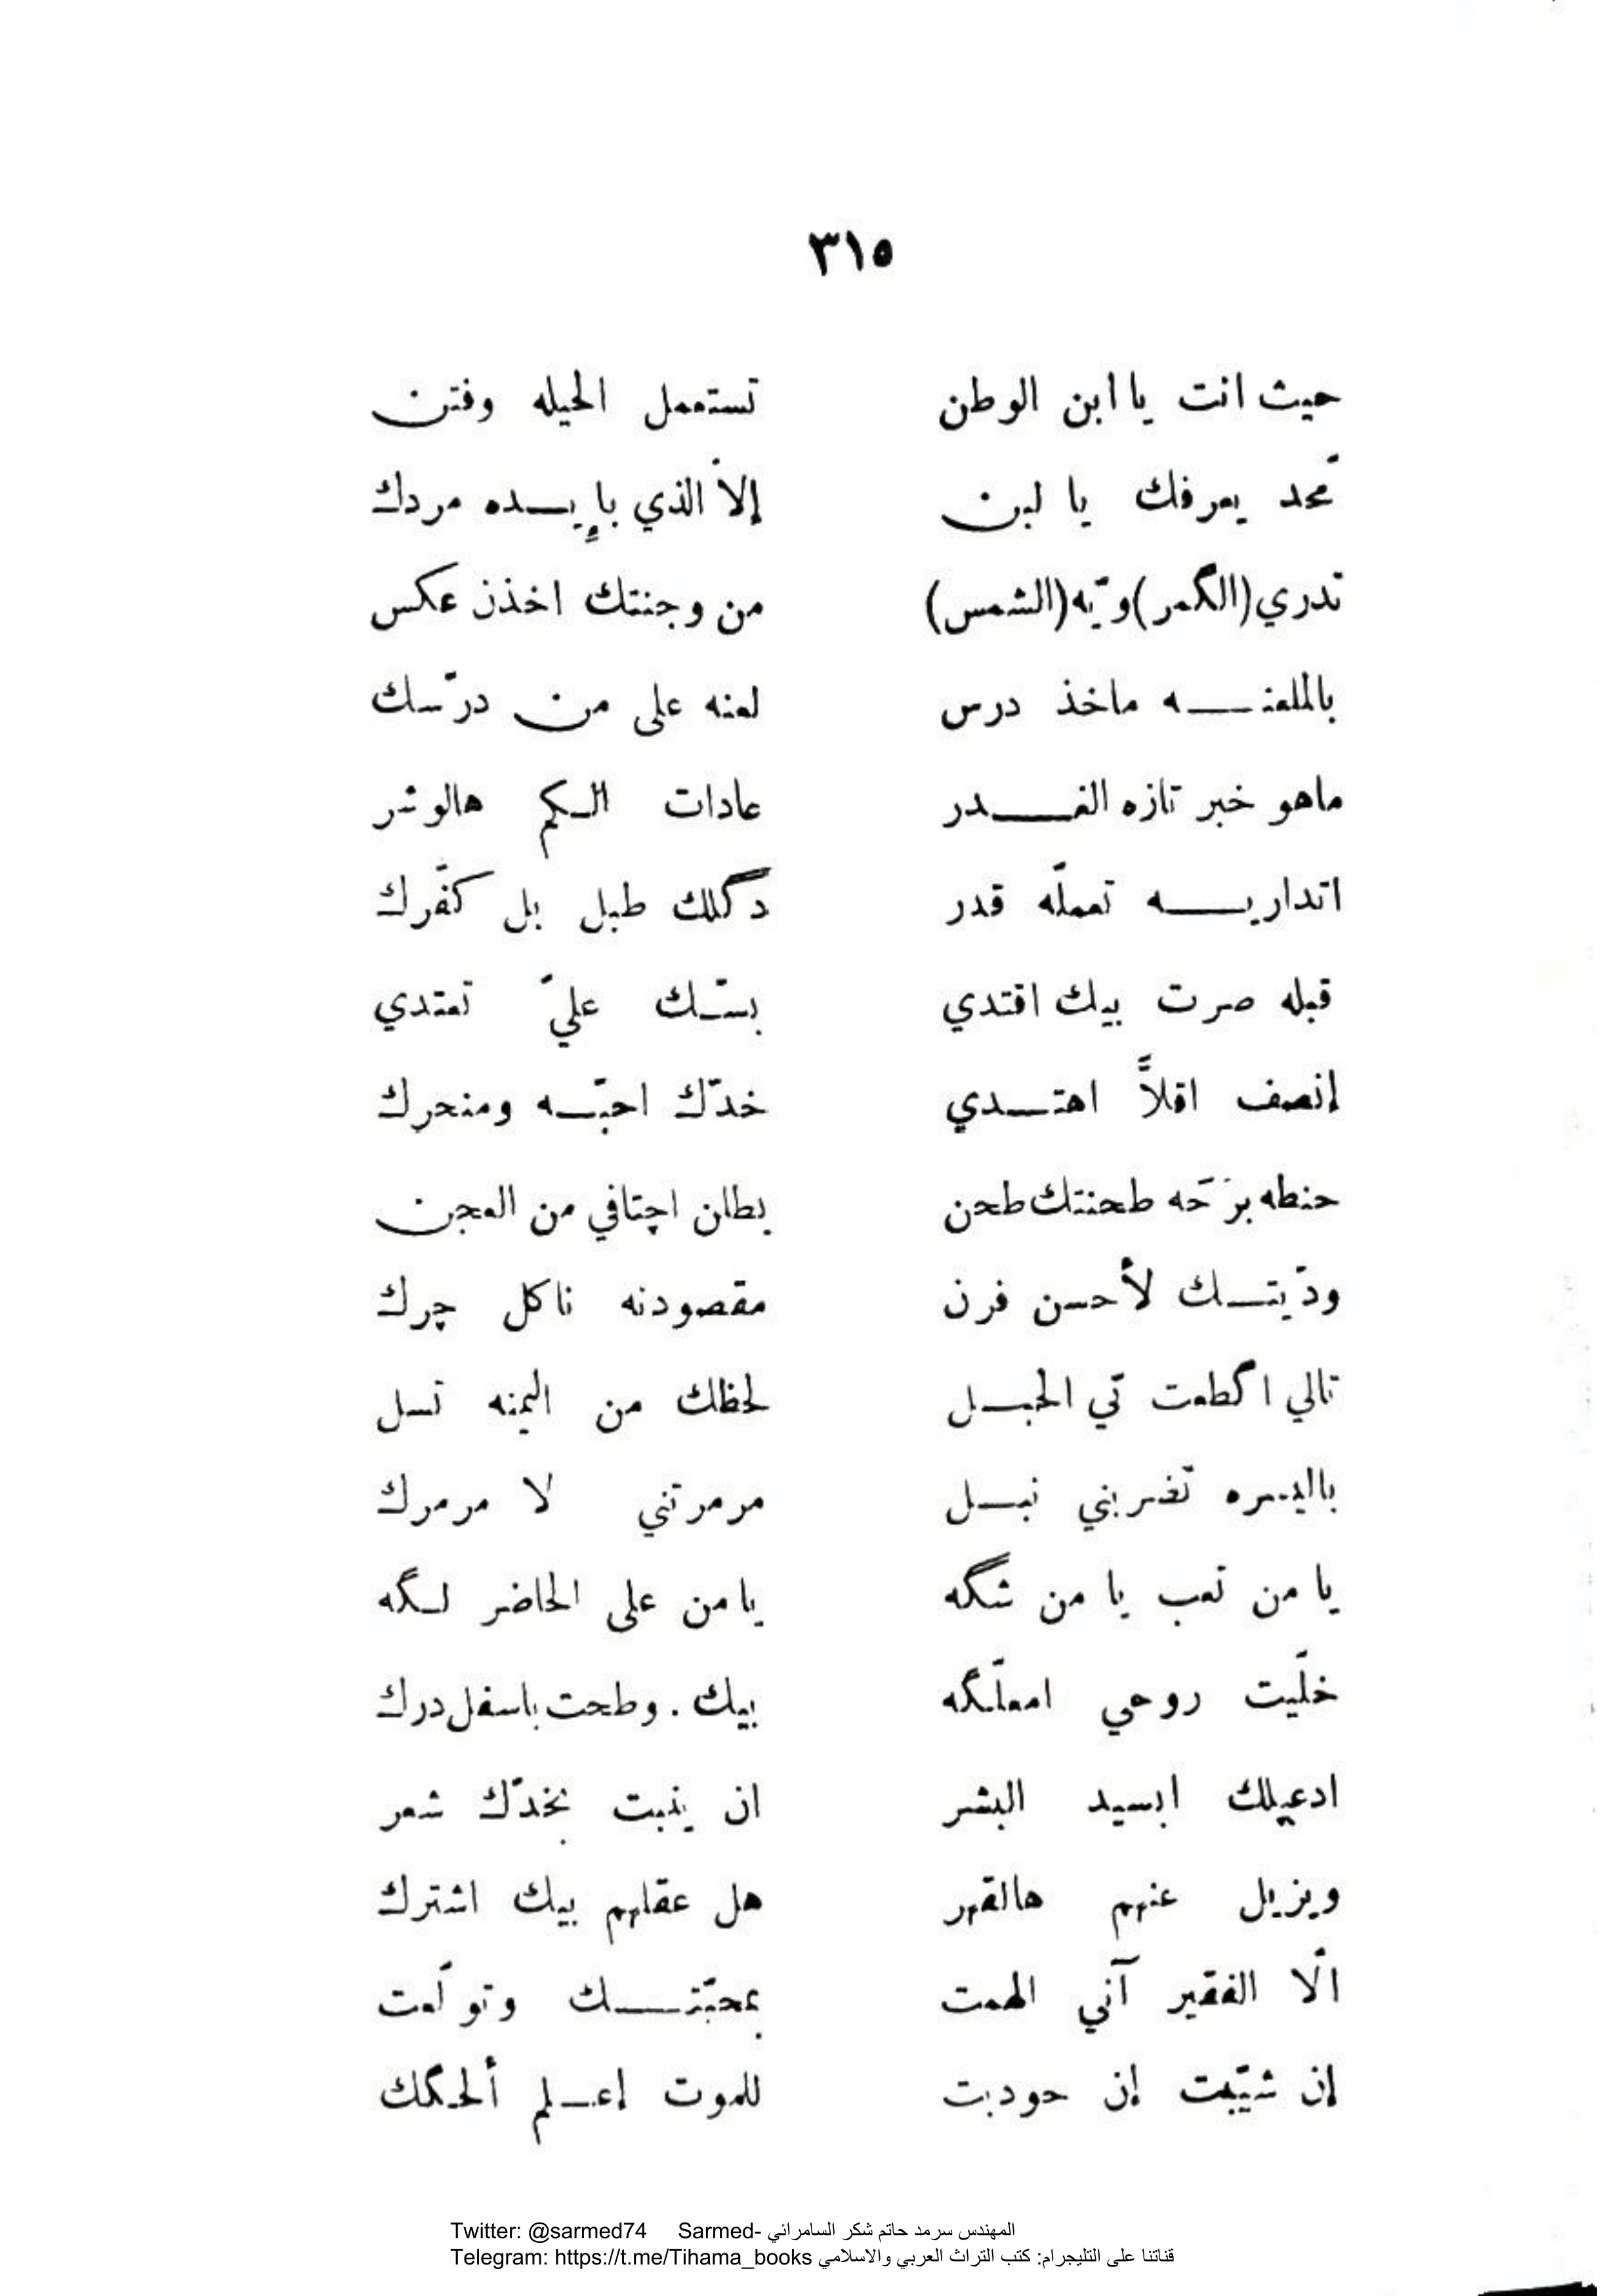 ٣١٥
حيث انت يا ابن الوطن تستعمل الحيله وفتن
محّد يعرفك يا لبن إلاّ الذي بإيـــده مردك
تدري (الگمر) ويّه (الشمس) من وجنتك اخذن عكس
بالملعنـــه ماخذ درس لعنه على من درّسك
ماهو خبر تازه الغـــدر عادات الـكم هالوشر
اتداريـــه تعملّه قدر دگلك طبل بل كفّرك
قبله صرت بيك اقتدي بسّك عليّ تعتدي
إنصف اقلاًّ اهتـــدي خدّك احبّـــه ومنحرك
حنطه برّحه طحنتك طحن بطلن اچتافي من العجن
ودّيتـــك لأحسن فرن مقصودنه ناكل چرك
تالي اگطعت تي الحبـــل لحظك من اليمنه تسل
باليسره تضربني نبـــل مرمرتني لا مرمرك
يا من تعب يا من شگه يا من على الحاضر لـگه
خلّيت روحي امعلّگه بيك . وطحت باسفل درك
ادعيلك ابسيد البشر ان ينبت بخدّك شعر
ويزيل عنهم هالقهر هل عقلهم بيك اشترك
الّا الفقير آني الهمت بمحبّتـــك وتولّعت
إن شيّبت إن حودبت للموت إعـــلم ألحـگك
Twitter: @sarmed74 Sarmed- المهندس سرمد حاتم شكر السامرائي
Telegram: https://t.me/Tihama_books قناتنا على التليجرام: كتب التراث العربي والاسلامي